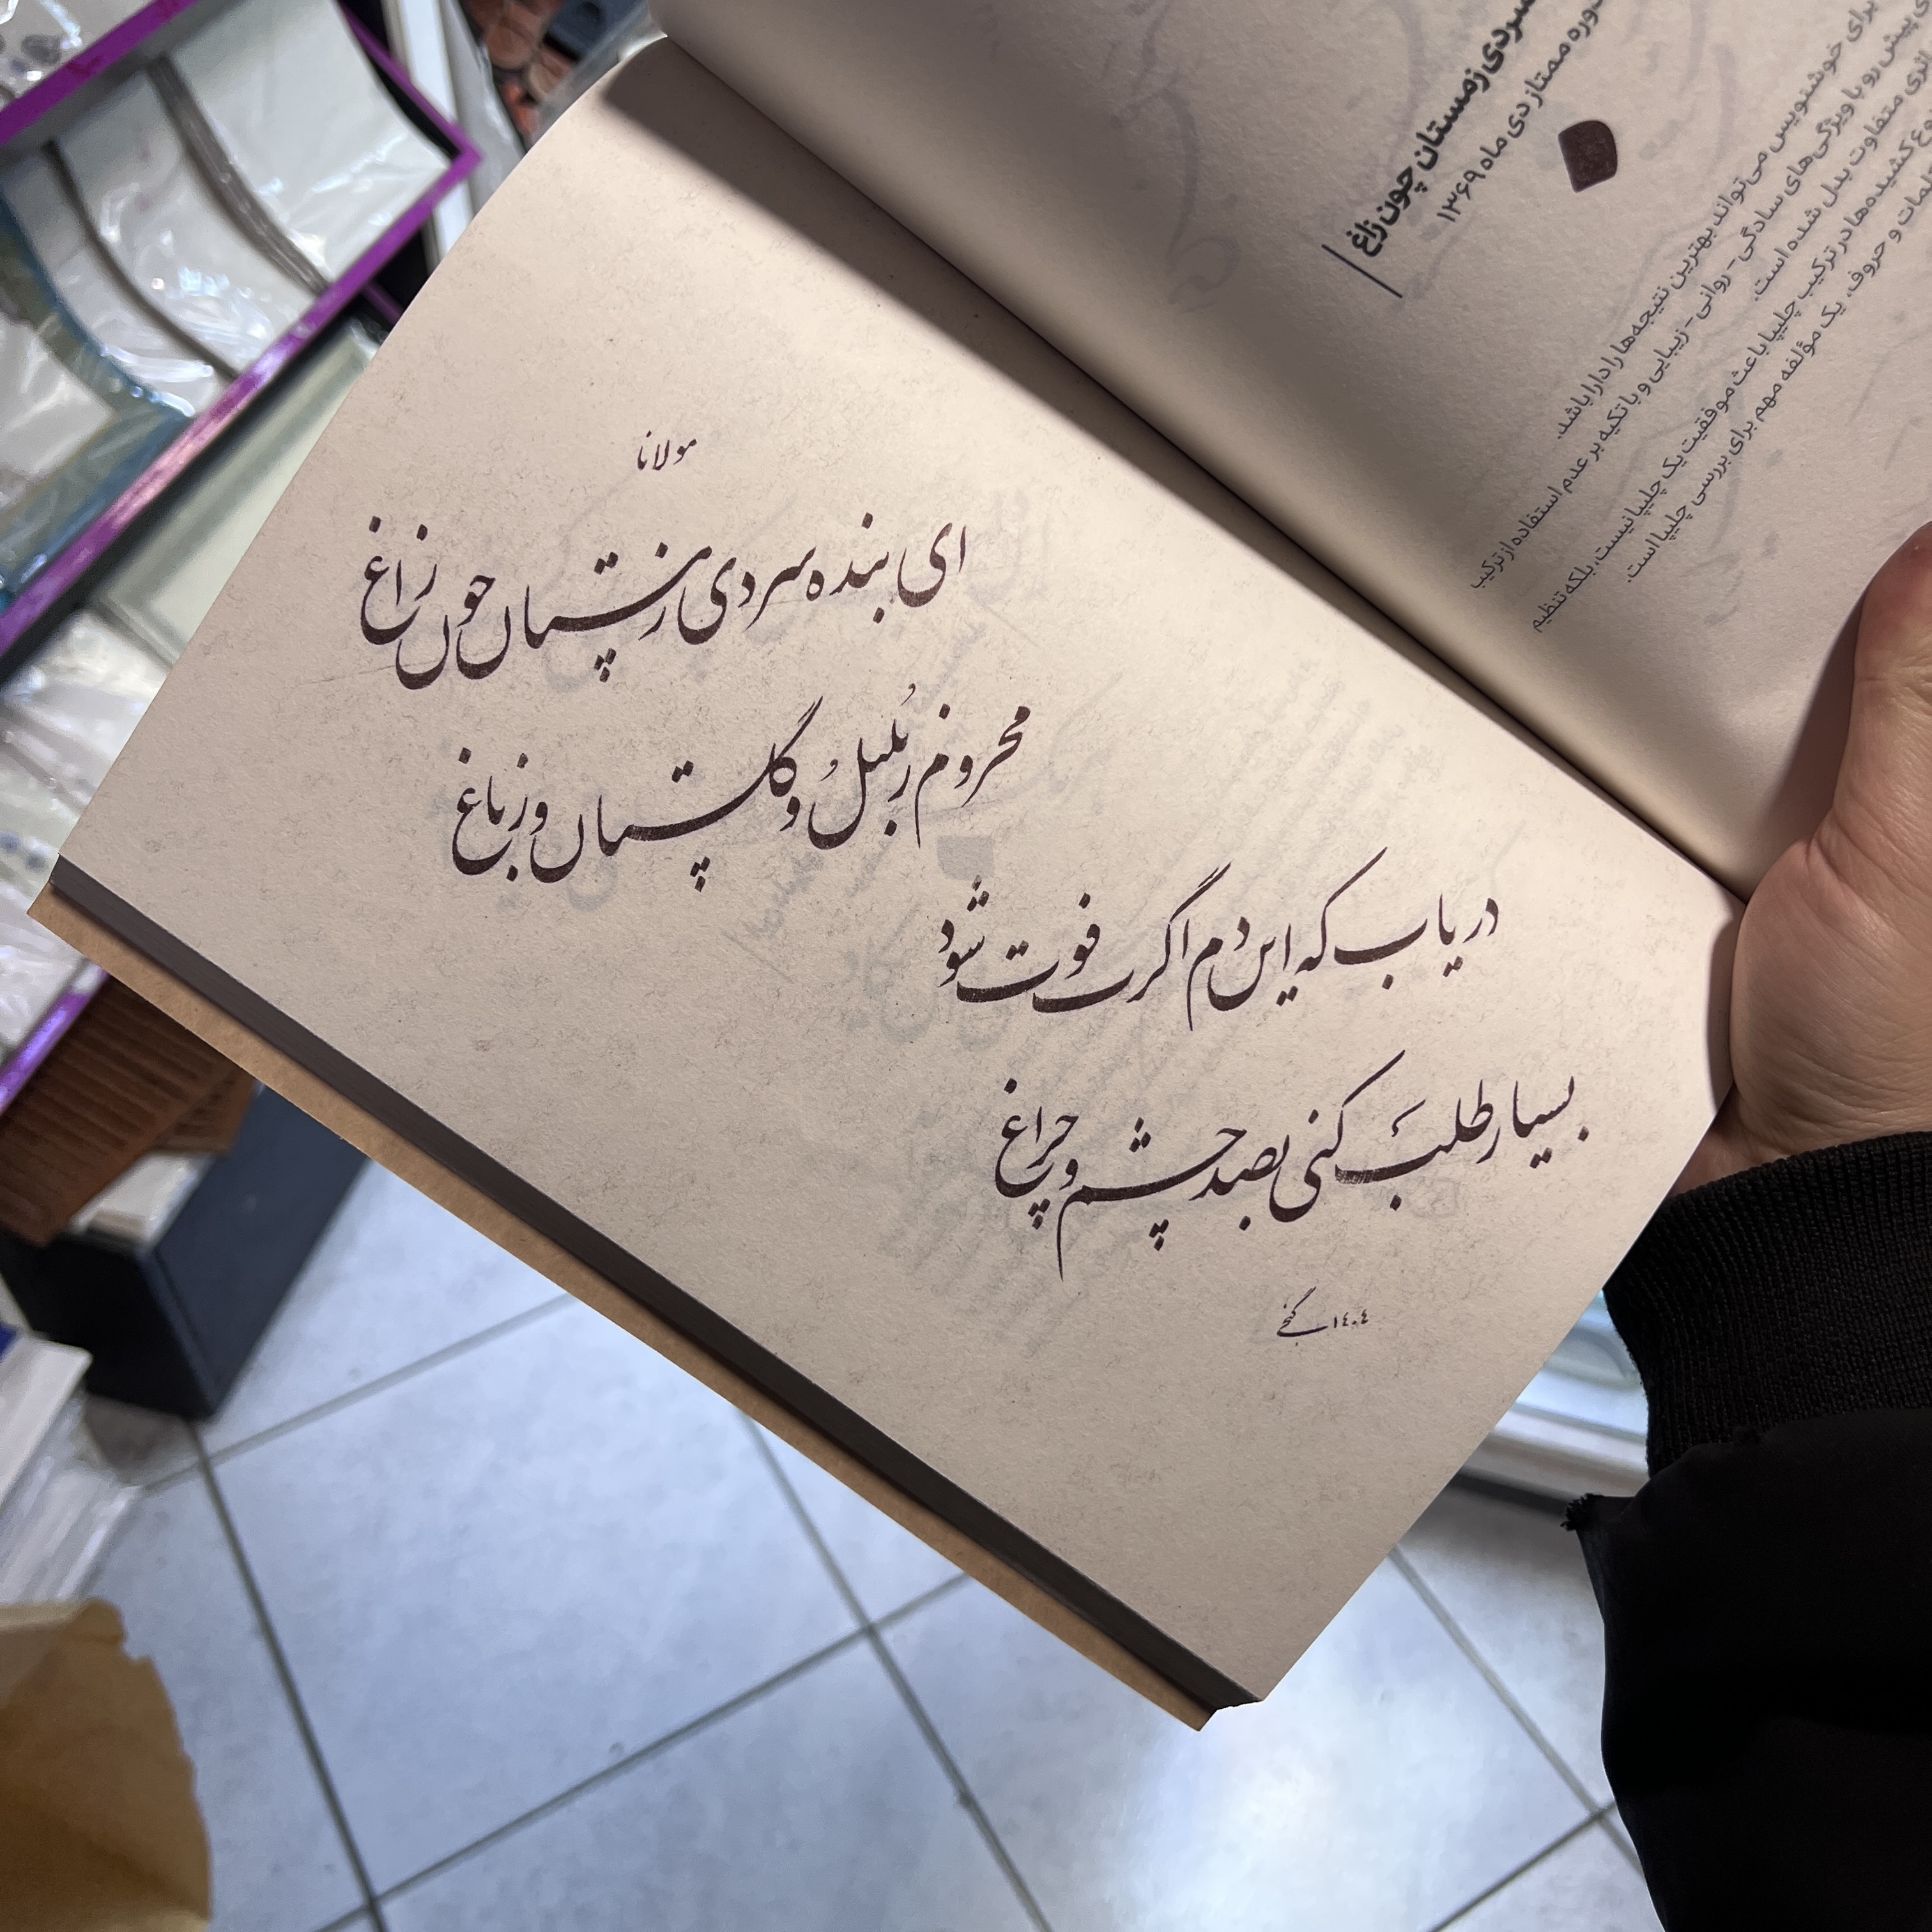 سردی زمستان چون زاغ
دوره ممتاز دی ماه ۱۳۶۹
برای خوشنویس می‌تواند بهترین نتیجه‌ها را دارا باشد.
پیش رو با ویژگی‌های سادگی- روانی- زیبایی و با تکیه بر عدم استفاده از ترکیب
اثری متفاوت بدل شده است.
کشیده‌ها در ترکیب چلیپا باعث موفقیت یک چلیپا نیست، بلکه تنظیم
کلمات و حروف، یک مؤلفه مهم برای بررسی چلیپا است.
مولانا
ای بنده سردی زمستان چون زاغ
محروم ز بُلبلُ و گلستان و ز باغ
دریاب که این دم اگرت فوت شود
بسیار طلبَ کنی بصد چشم و چراغ
۱۴۰۴